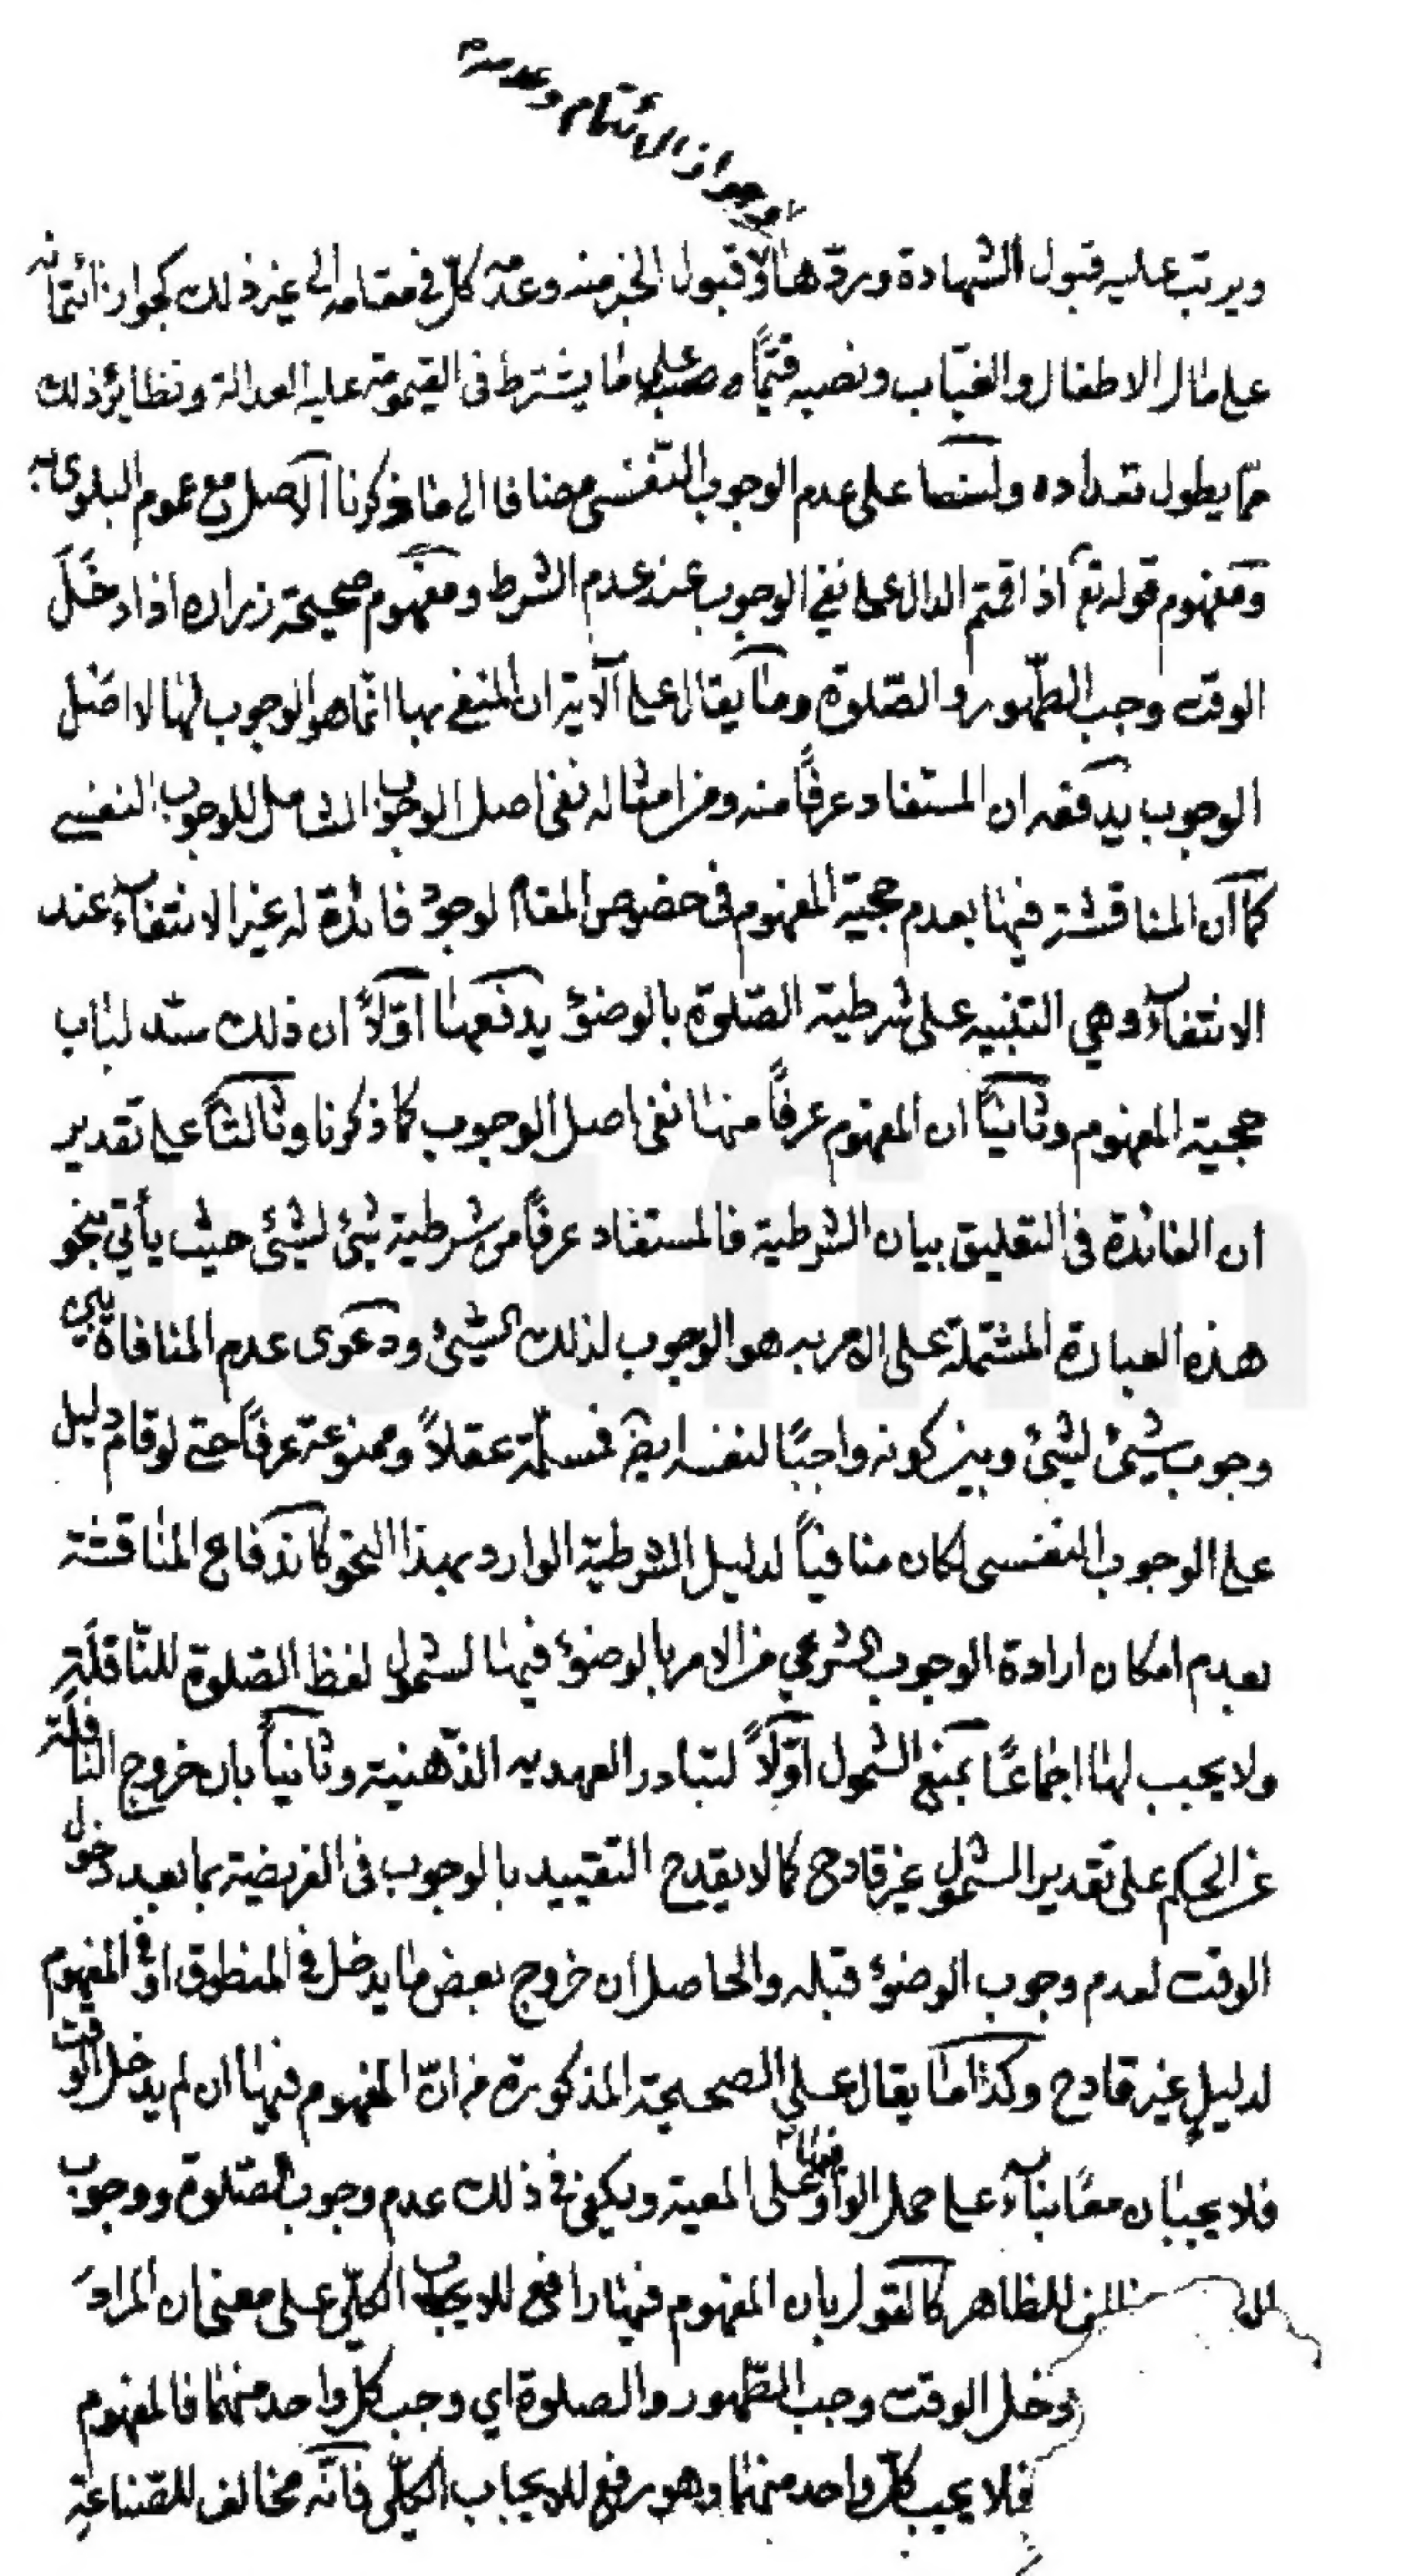 وجواز الائتمام وعدمه
ويرتب عليه قبول الشهادة وردّها وقبول الخبر منه وعدمه كلّ في مقامه الى غير ذلك كجواز ائتمانه
على مال الاطفال والغيّاب ونصبه قيّماً على ما يشترط فى القيمومة عليه العدالة ونظائر ذلك
ممّا يطول تعداده ولنا على عدم الوجوب النفسى مضافا الى ما ذكرنا الاصل مع عموم البلوى به
ومفهوم قوله تع اذا قمتم الدال على نفي الوجوب عند عدم الشرط ومفهوم صحيحة زرارة اذا دخل
الوقت وجب الطّهور والصّلوة وما يقال على الآية ان المنفي بها انّما هو الوجوب لها لا اصل
الوجوب يدفعه ان المستفاد عرفاً منه ومن امثاله نفى اصل الوجوب الشامل للوجوب النفسي
كما ان المناقشة فيها بعدم حجية المفهوم فى خصوص المقام لوجود فائدة له غير الانتفاء عند
الانتفاء وهي التنبيه على شرطية الصّلوة بالوضوء يدفعها اوّلاً ان ذلك سدّ لباب
حجية المفهوم وثانياً ان المفهوم عرفاً منها نفى اصل الوجوب كما ذكرنا وثالثاً على تقدير
ان الفائدة فى التعليق بيان الشرطية فالمستفاد عرفاً من شرطية شئ لشئ حيث يأتي بنحو
هذه العبارة المشتملة على الامر به هو الوجوب لذلك الشئ ودعوى عدم المنافاة بين
وجوب شئ لشئ وبين كونه واجبًا لنفسه ايض فمسلّمة عقلاً وممنوعة عرفاً حتى لو قام دليل
على الوجوب النفسى لكان منافياً لدليل الشرطية الوارد بهذا النحو كاندفاع المناقشة
بعدم امكان ارادة الوجوب الشرعي من الامر بالوضوء فيها لشمول لفظ الصّلوة للنّافلة
ولا يجب لها اجماعًا بمنع الشمول اوّلاً لتبادر العهديه الذّهنية وثانياً بان خروج النافلة
عن الحكم على تقدير الشمول غير قادح كما لا يقدح التقييد بالوجوب فى الفريضة بما بعد دخول
الوقت لعدم وجوب الوضوء قبله والحاصل ان خروج بعض ما يدخل في المنطوق او في المفهوم
لدليلٍ غير قادح وكذا ما يقال على الصحيحة المذكورة من انّ المفهوم فيها ان لم يدخل الوقت
فلا يجبان معًا بناءً على حمل الواو فيها على المعية ويكفى في ذلك عدم وجوب الصّلوة ووجوب
للظاهر كالقول بان المفهوم فيها رافع للايجاب الكلّي على معنى ان المراد
دخل الوقت وجب الطّهور والصلوة اي وجب كل واحد منهما فالمفهوم
فلا يجب كلّ واحد منهما وهو رفع للايجاب الكلّى فانّه مخالف للصّناعة